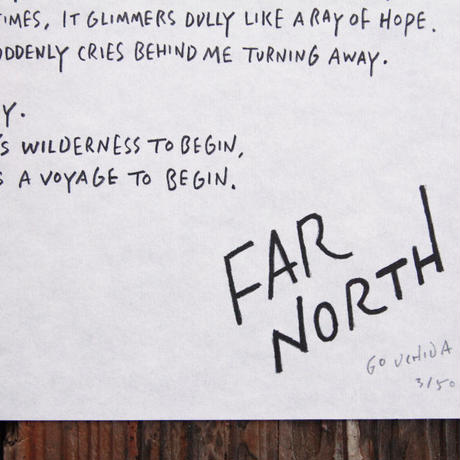 TIMES, IT GLIMMERS DULLY LIKE A RAY OF HOPE.
DDENLY CRIES BEHIND ME TURNING AWAY.
Y.
'S WILDERNESS TO BEGIN,
S A VOYAGE TO BEGIN.
FAR
NORTH
GO UCHIDA
3/50